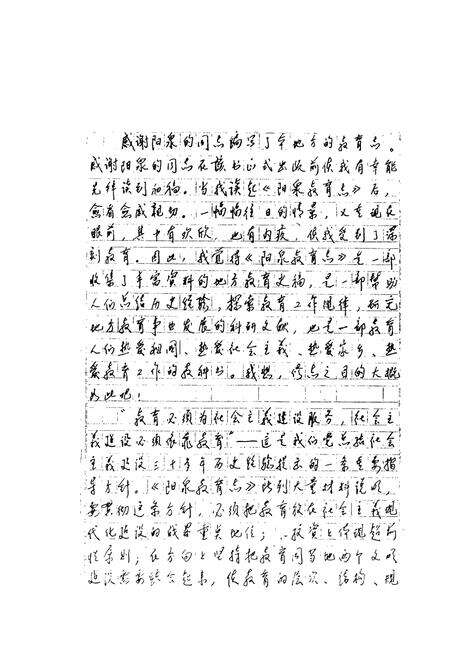 感谢阳泉的同志编写了本地方的教育志。
感谢阳泉的同志在该书正式出版前使我有幸能
先拜读到初稿。当我读起《阳泉教育志》后，
愈看愈感亲切。一幅幅往日的情景，又重现在
眼前，其中有欢欣，也有内疚，使我受到了深
刻教育。因此，我觉得《阳泉教育志》是一部
收集了丰富资料的地方教育史稿，是一部帮助
人们总结历史经验，探索教育工作规律，研究
地方教育事业发展的科研文献，也是一部教育
人们热爱祖国、热爱社会主义、热爱家乡、热
爱教育工作的教科书。我想，修志之目的大概
如此吧！
“教育必须为社会主义建设服务，社会主
义建设必须依靠教育”——这是我们党总结社会
主义建设三十多年历史经验提出的一条重要指
导方针。《阳泉教育志》的大量材料说明，
要贯彻这条方针，必须把教育放在社会主义现
代化建设的战略重要地位；投资上体现超前
性原则；在方向上坚持把教育同当地两个文明
建设需要结合起来，使教育的层次、结构、规